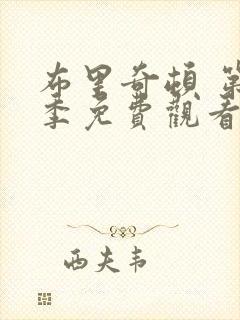 布里奇頓 第
季免費觀看
西夫韦